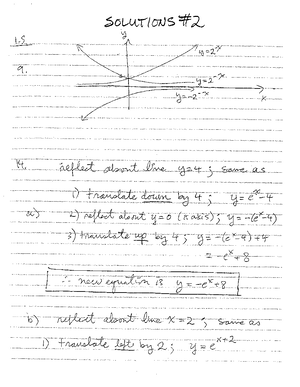 SOLUTIONS #2
1.5
y
y=2^x
9.
y=2^-x
y=-2^-x
x
14. reflect about line y=4 ; same as
1) translate down by 4 ; y=e^x-4
a) 2) reflect about y=0 (x axis) ; y=-(e^x-4)
3) translate up by 4 ; y=-(e^x-4)+4
= -e^x+8
∴ new equation is y=-e^x+8
b) reflect about line x=2 ; same as
1) translate left by 2 ; y=e^x+2